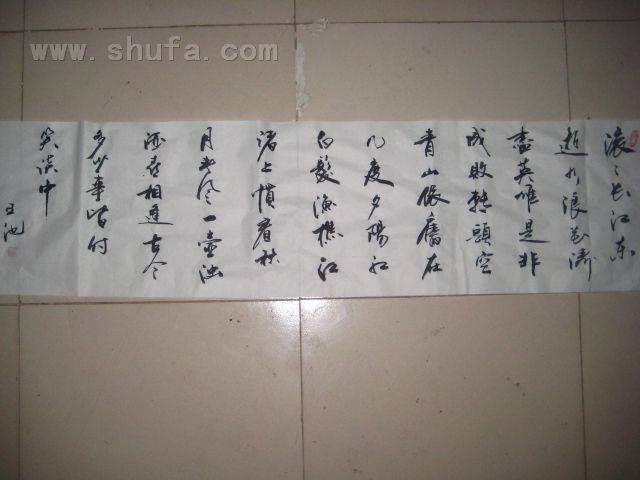 www.shufa.com
滚滚长江东
逝水浪花淘
盡英雄是非
成敗轉頭空
青山依舊在
几度夕陽红
白髮漁樵江
渚上慣看秋
月春风一壶浊
酒喜相逢古今
多少事皆付
笑谈中